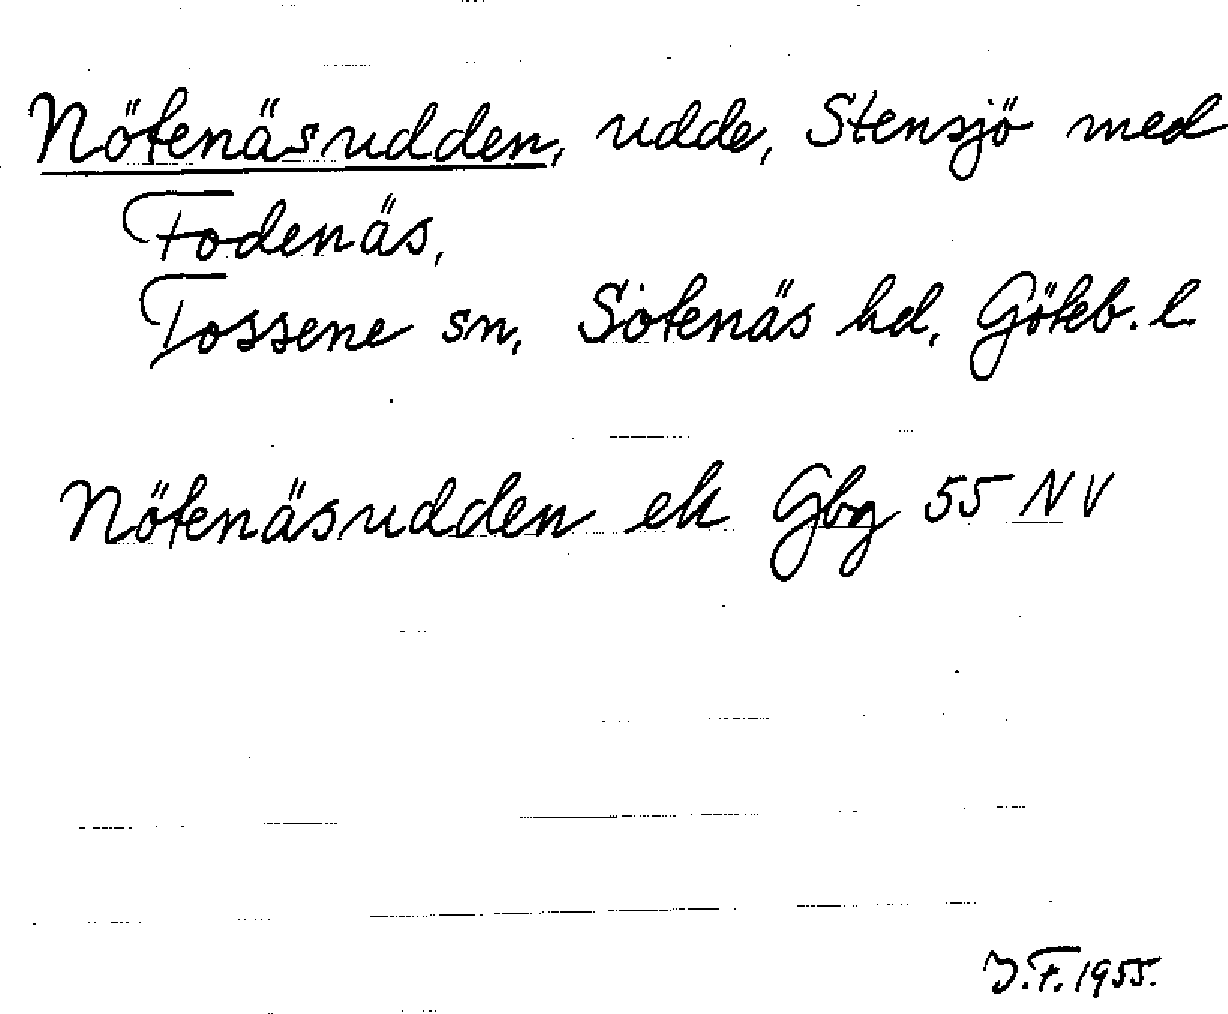 Nötenäsudden, udde, Stensjö med
Fodenäs,
Tossene sn, Sotenäs hd, Göteb. l
Nötenäsudden ek Gbg 55 NV
J.F. 1955.